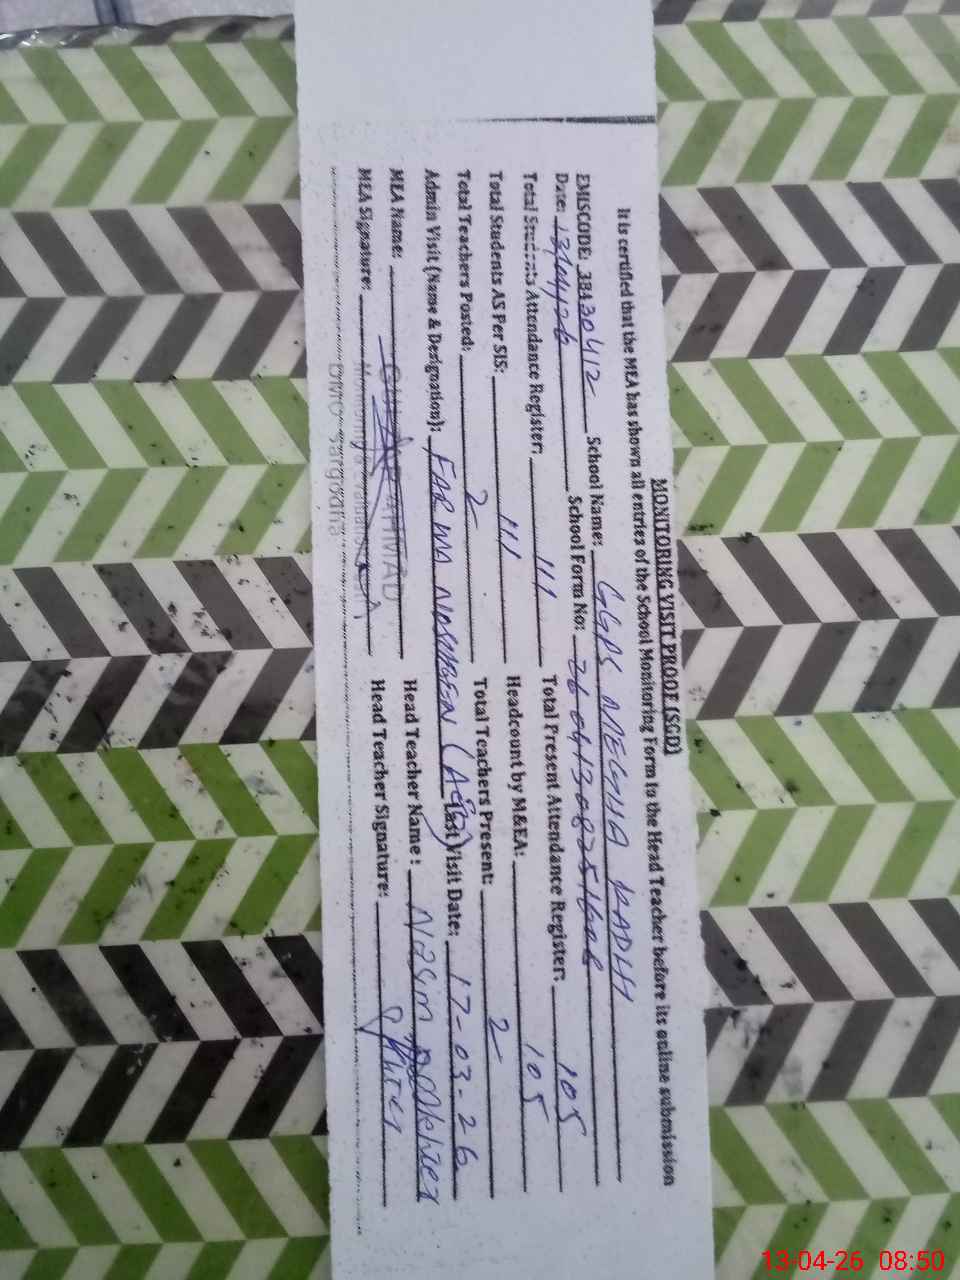 MONITORING VISIT PROOF (SGD)
It is certified that the MEA has shown all entries of the School Monitoring Form to the Head Teacher before its online submission
EMISCODE: 38430412 School Name: GGPS MEGHA KADHI
Date: 13/04/26 School Form No:
Total Students Attendance Register: 111 Total Present Attendance Register: 105
Total Students AS Per SIS: 111 Headcount by M&EA: 105
Total Teachers Posted: 2 Total Teachers Present: 2
Admin Visit (Name & Designation): FARWA NOSHEEN (AEO) Last Visit Date: 17-03-26
MEA Name: Head Teacher Name: Nasim Akhter
MEA Signature: Head Teacher Signature:
Monitoring & Evaluation
DMO Sargodha
13-04-26 08:50